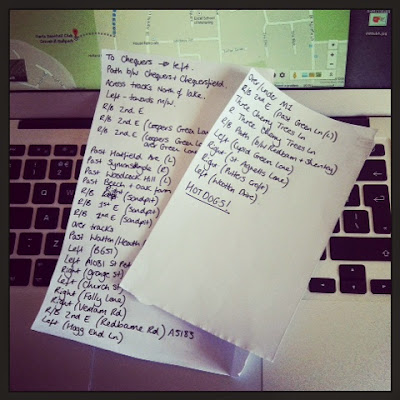 To Chequers → left.
Path b/w Chequers + Chequersfield.
Across tracks North of lake.
Left → towards m/w.
R/B 2nd E
R/B 2nd E (Coopers Green Lane)
R/B 2nd E (Coopers Green Lane)
over Green Lane
Past Hatfield Ave (L)
Past (R)
Past Woodcock Hill (L)
Past Beech + Oak farm
R/B Right (Sandpit)
R/B 1st E (Sandpit)
R/B 2nd E (Sandpit)
Over tracks
Past Watton/Heath
Left (B651)
Left A1081 St Pet
Right (Grange St)
Left (Church St)
Right (Folly Lane)
Right (Verlam Rd)
R/B 2nd E (Redbourne Rd) A5183
Left (Hogg End Ln)
Over/under M1
R/B 2nd E (Past Green Ln (L))
L Three Cherry Trees Ln
R Three Cherry Trees Ln
R/B Path (b/w Redbourn + Shenley)
Left (Upnd Green Lane)
Right (St Agnells Lane)
Right (Putters Croft)
Left (Wootton Drive)
HOTDOGS!